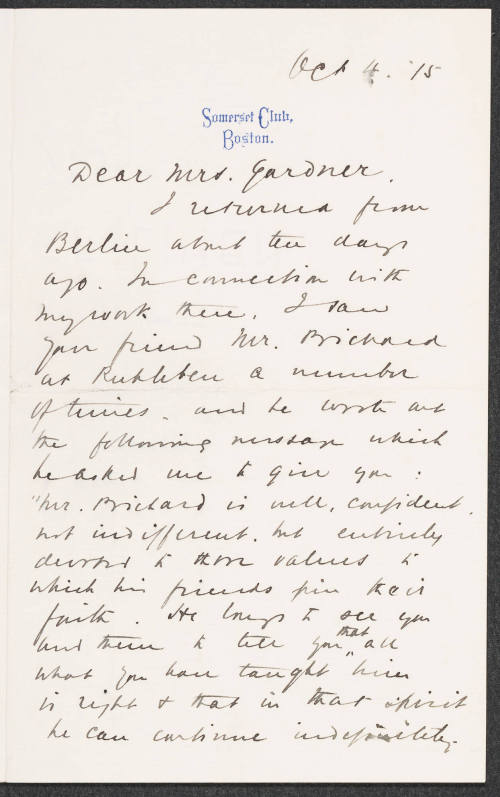 Oct 4. '15
Somerset Club,
Boston.
Dear Mrs. Gardner,
I returned from
Berlin about ten days
ago. In connection with
my work there, I saw
your friend Mr. Prichard
at Ruhleben a number
of times. and he wrote out
the following message which
he asked me to give you:
"Mr. Prichard is well, confident,
not indifferent, but entirely
devoted to those values to
which his friends pin their
faith. He longs to see you
and them to tell you that all
what you have taught him
is right & that in that spirit
he can continue indefinitely.